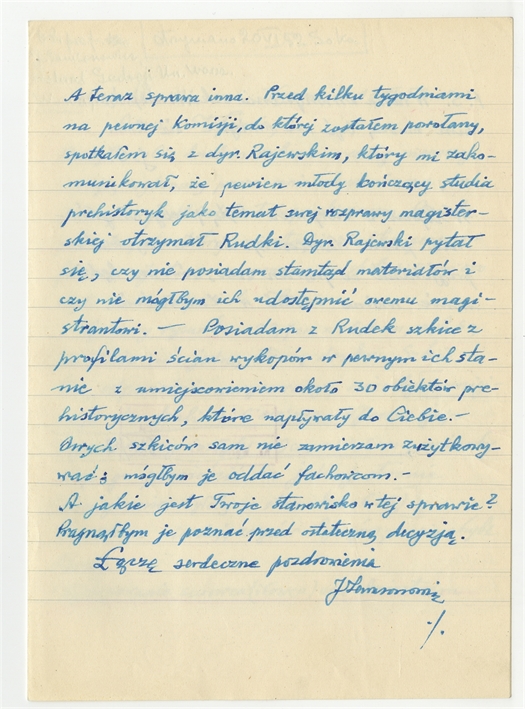 A teraz sprawa inna. Przed kilku tygodniami
na pewnej Komisji, do której zostałem powołany,
spotkałem się z dyr. Rajewskim, który mi zako-
munikował, że pewien młody kończący studia
prehistoryk jako temat swej rozprawy magister-
skiej otrzymał Rudki. Dyr. Rajewski pytał
się, czy nie posiadam stamtąd materiałów i
czy nie mógłbym ich udostępnić owemu magi-
strantowi. — Posiadam z Rudek szkice z
profilami ścian wykopów w pewnym ich sta-
nie z umiejscowieniem około 30 obiektów pre-
historycznych, które napływały do Ciebie.—
Owych szkiców sam nie zamierzam zużytkowy-
wać i mógłbym je oddać fachowcom.—
A jakie jest Twoje stanowisko w tej sprawie?
Pragnąłbym je poznać przed ostateczną decyzją.
Łączę serdeczne pozdrowienia
./.